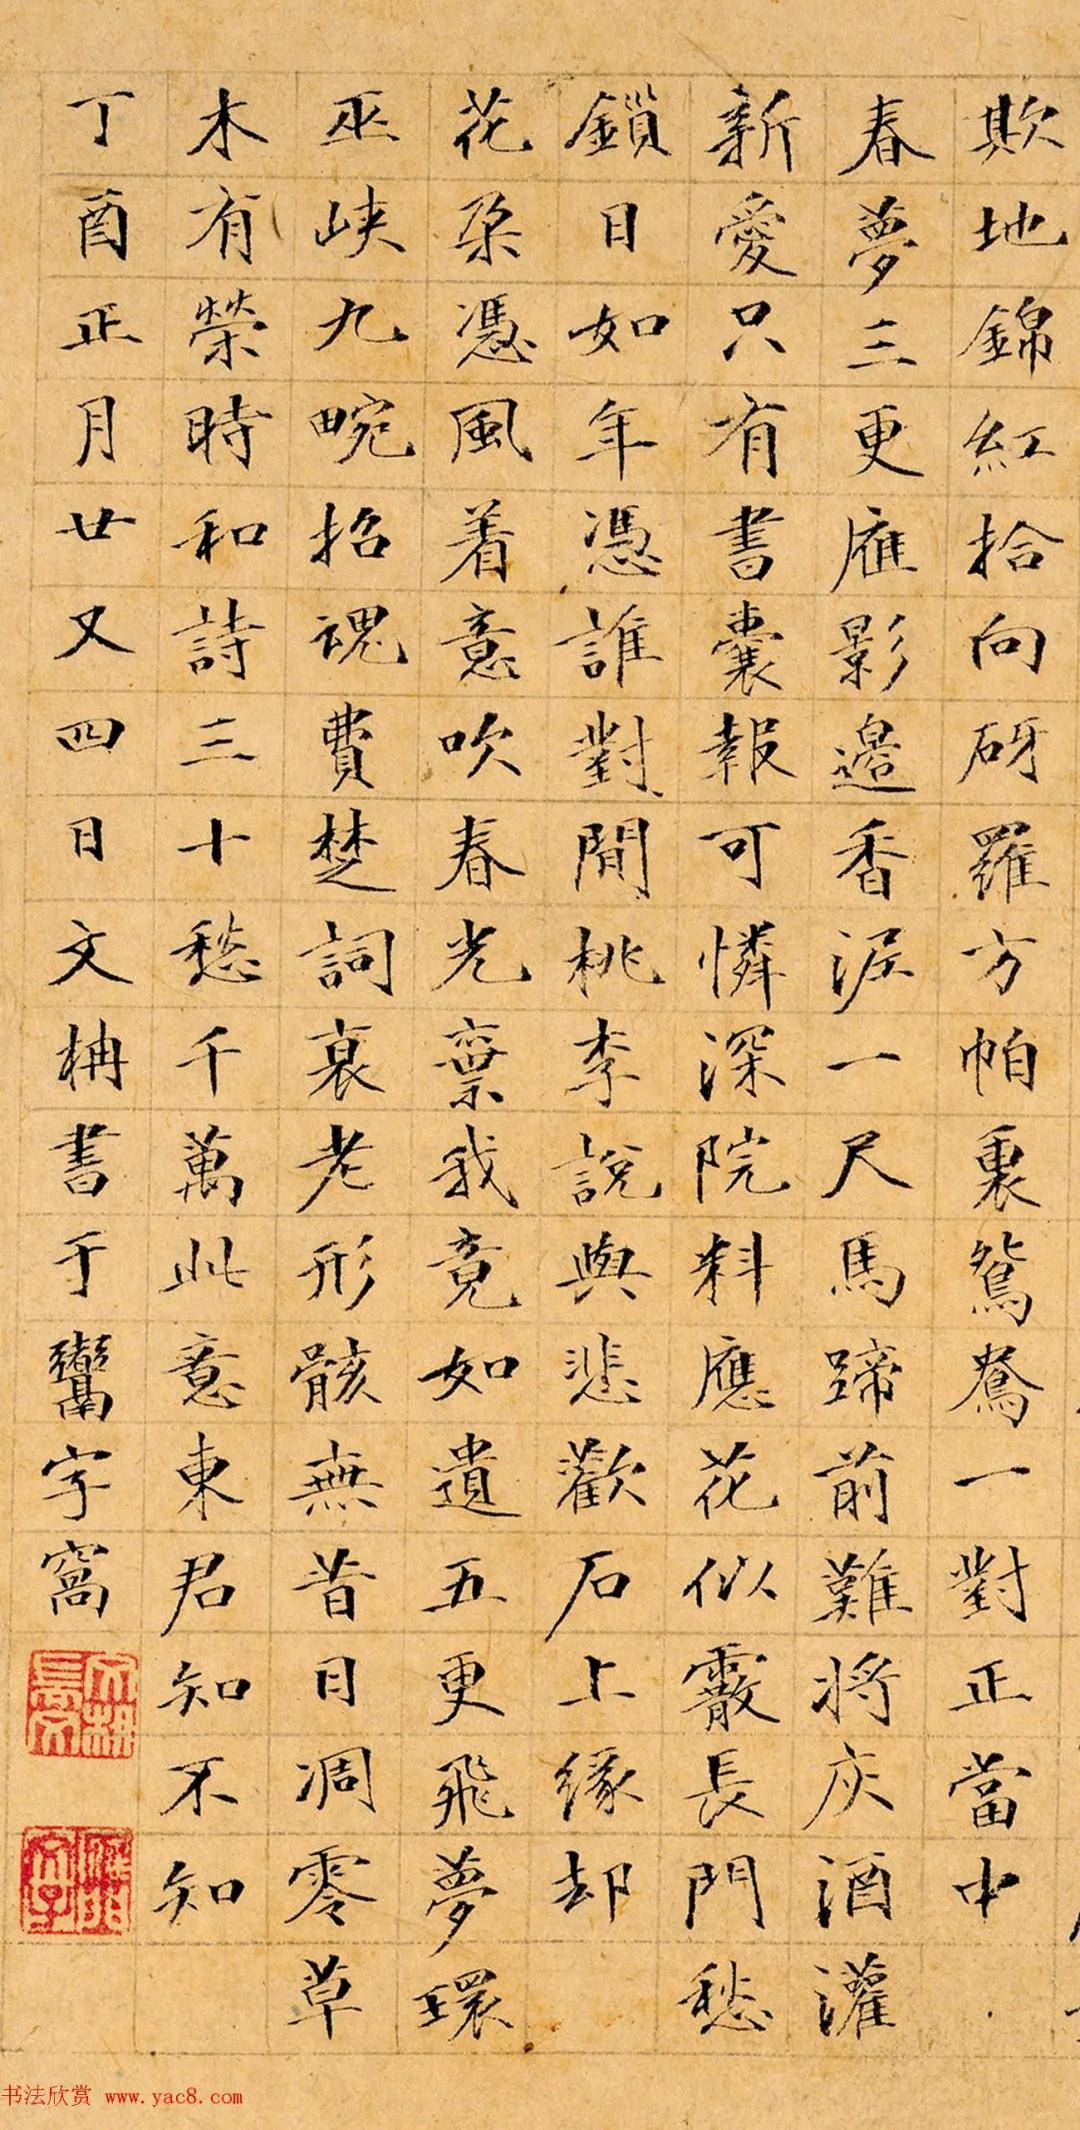 欺地錦紅拾向砑羅方帕裏鴛鴦一對正當中
春夢三更雁影邊香泥一尺馬蹄前難將灰酒灌
新愛只有書囊報可憐深院料應花似霰長門愁
鎖日如年憑誰對閒桃李說與悲歡石上緣却
花朵憑風着意吹春光棄我竟如遺五更飛夢環
巫峽九畹招魂費楚詞衰老形骸無昔日凋零草
木有榮時和詩三十愁千萬此意東君知不知
丁酉正月廿又四日文枏書于鬻字窩
书法欣赏 www.yac8.com